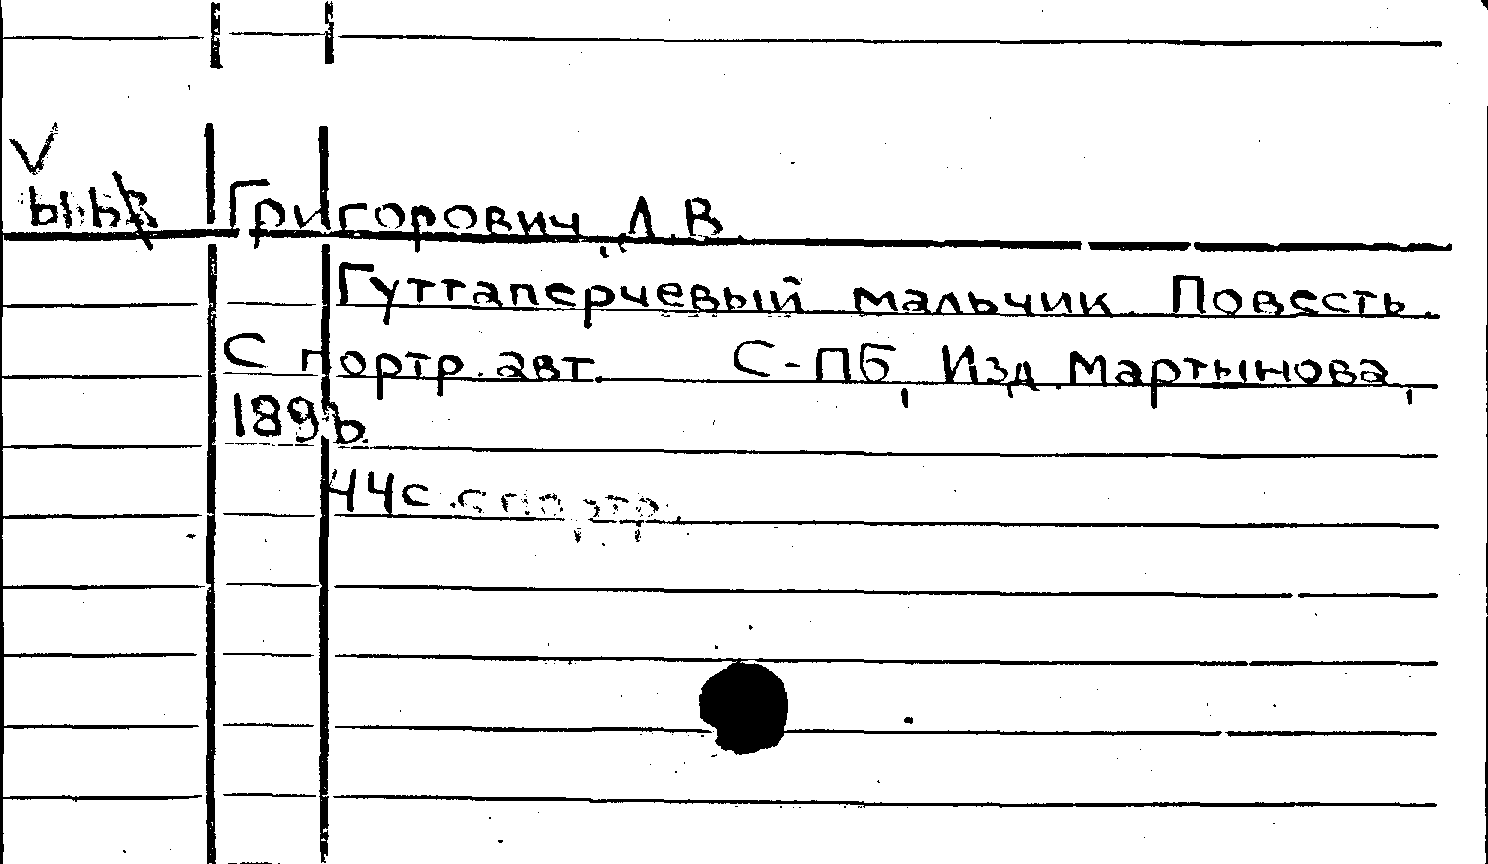 V
Григорович, Д.В.
Гуттаперчевый мальчик. Повесть.
С портр. авт. С-Пб, Изд. Мартынова,
189
44с. с портр.